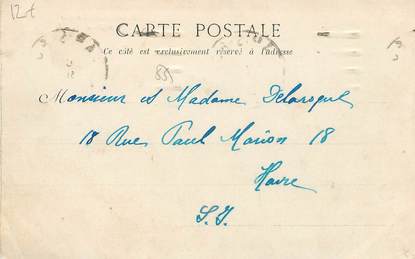 12€
CARTE POSTALE
Ce côté est exclusivement réservé à l'adresse
Monsieur et Madame Delaroque
18 Rue Paul Marion 18
Havre
S. I.